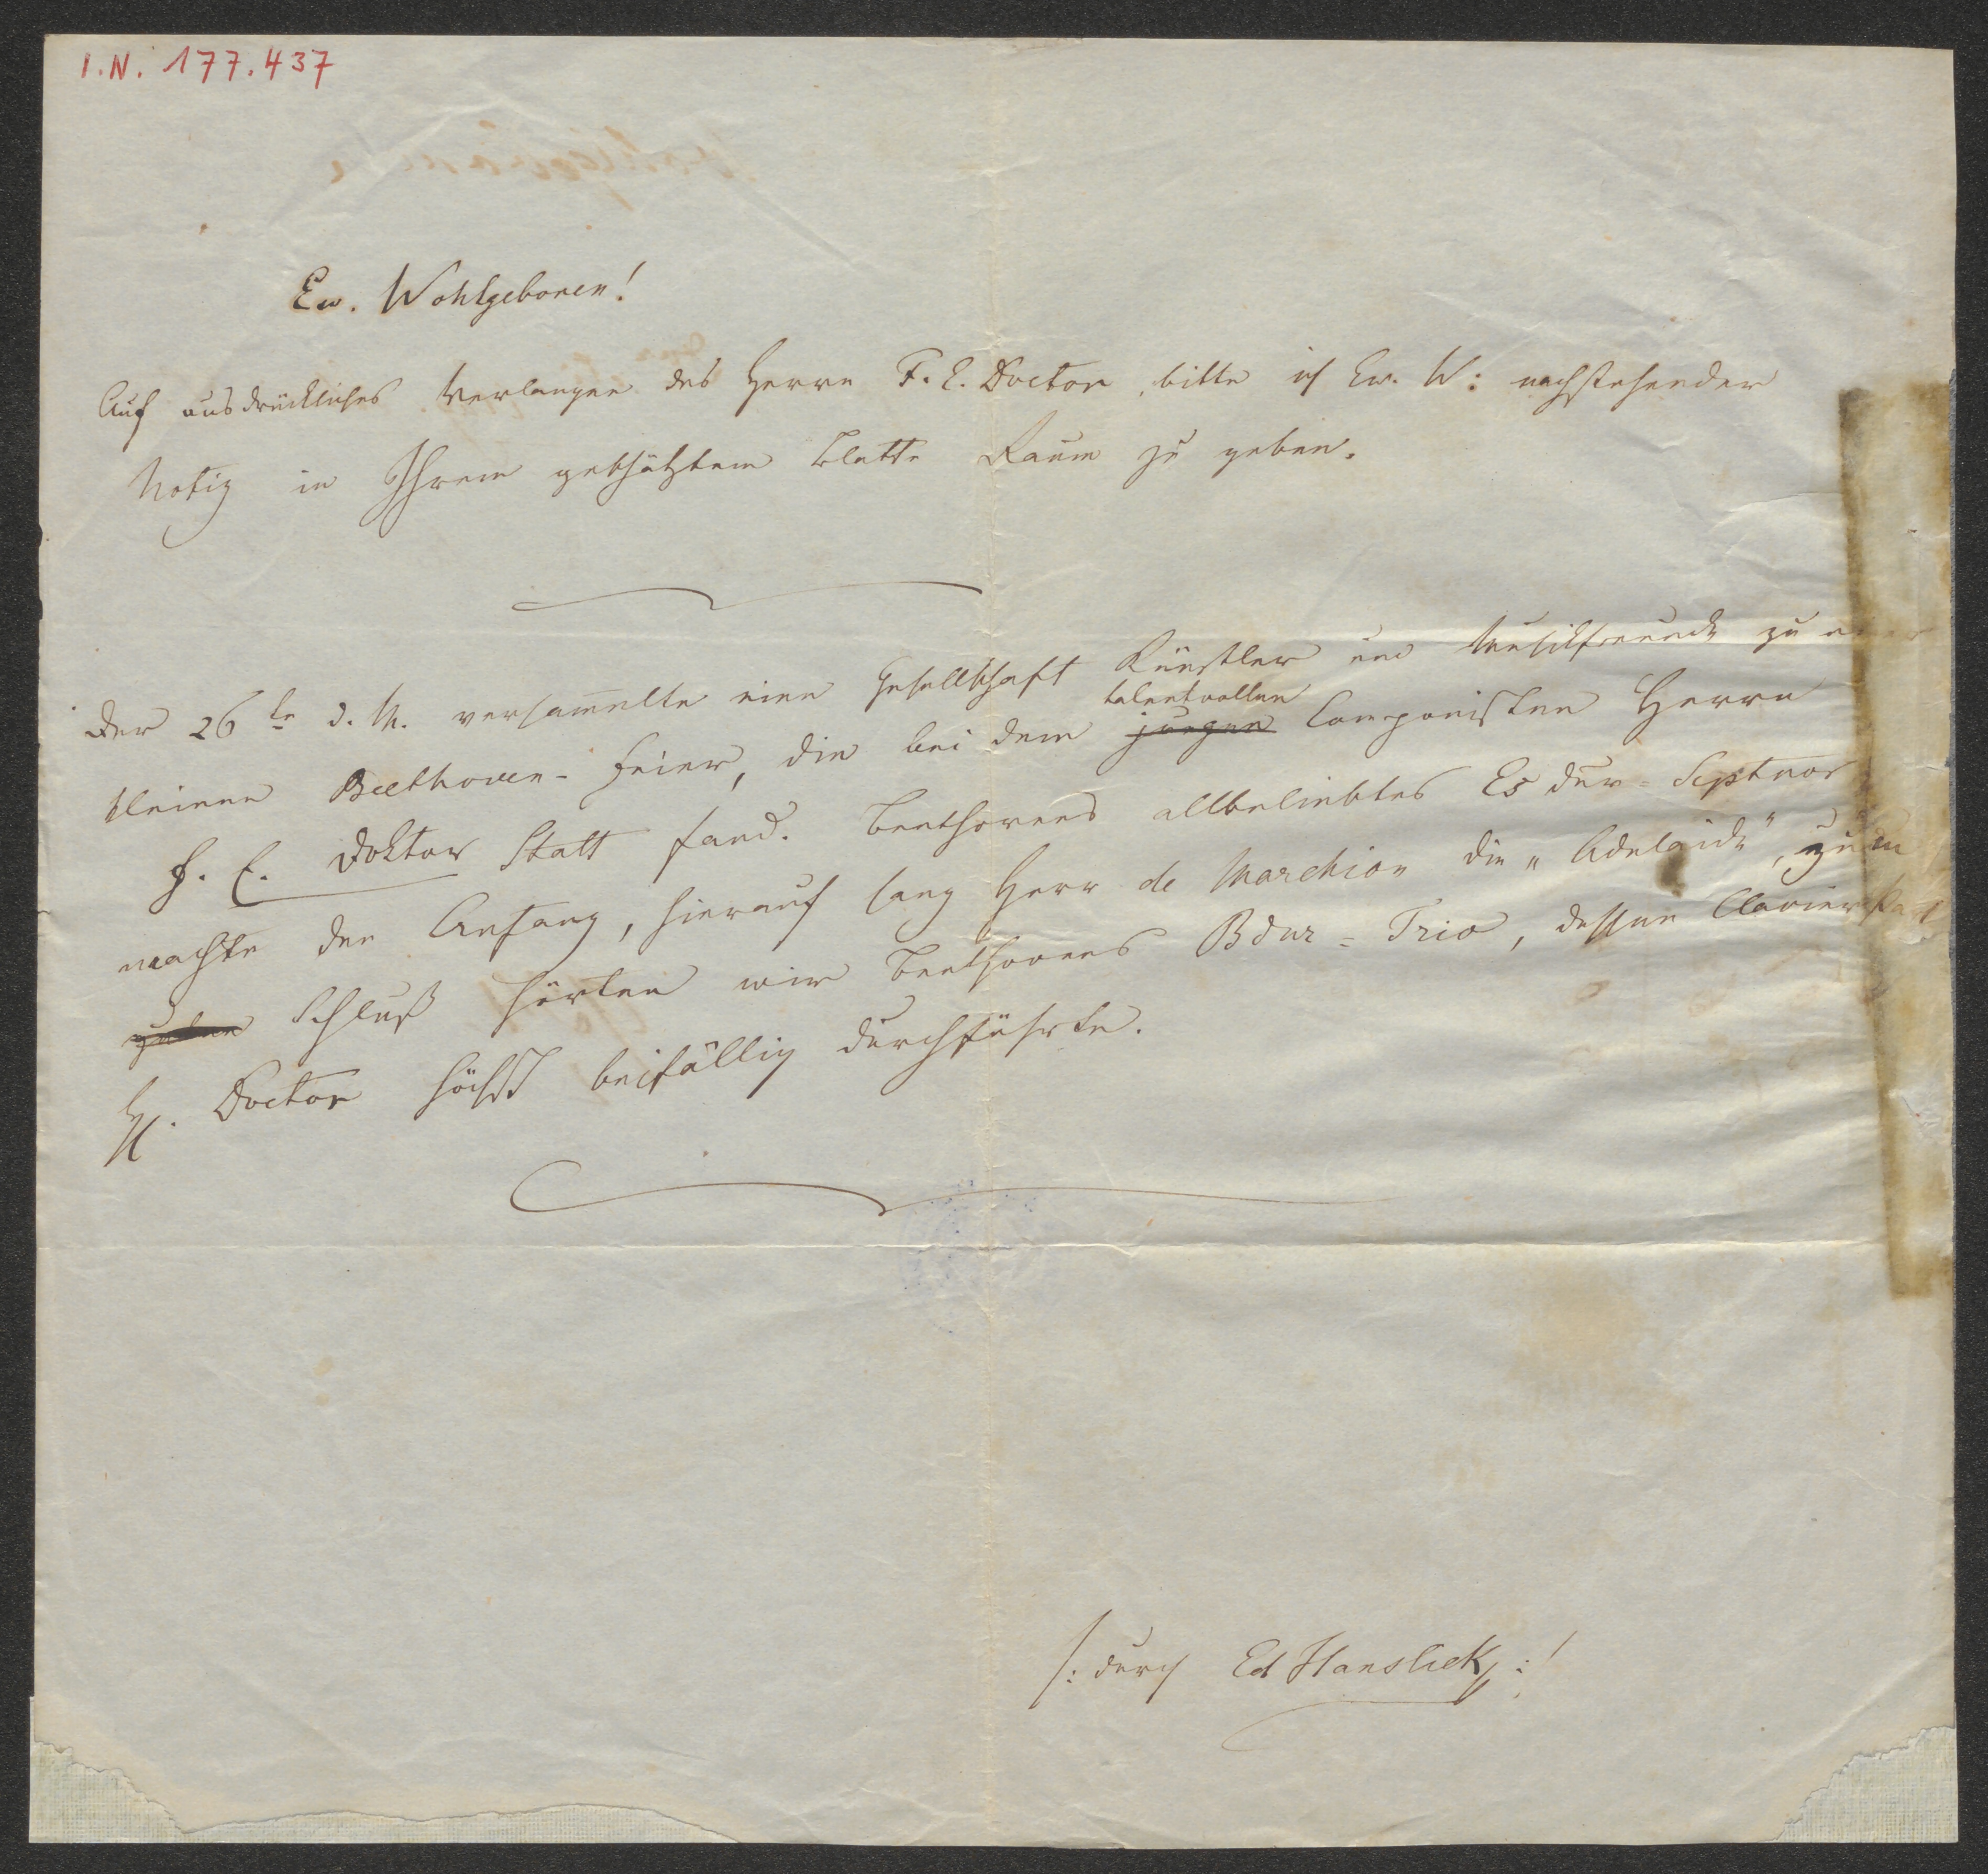 I.N. 177.437
Ew. Wohlgeboren!
Auf ausdrückliches Verlangen des Herrn F. E. Doctor, bitte ich Ew. W: nachstehender
Notiz in Ihrem geschätzten Blatte Raum zu geben.
Der 26te d. M. versam̅elte eine Gesellschaft Künstler und Musikfreunde zu einer
talentvollen
kleinen Beethoven-Feier, die bei dem jungen Componisten Herrn
F. E. Doktor Statt fand. Beethovens allbeliebtes Es dur-Septuor
machte den Anfang, hierauf sang Herr de Marchion die „Adelaide", zum
zum Schluß hörten wir Beethovens B dur-Trio, dessen Clavierpart
H. Doctor höchst beifällig durchführte.
/: durch Ed Hanslick :/